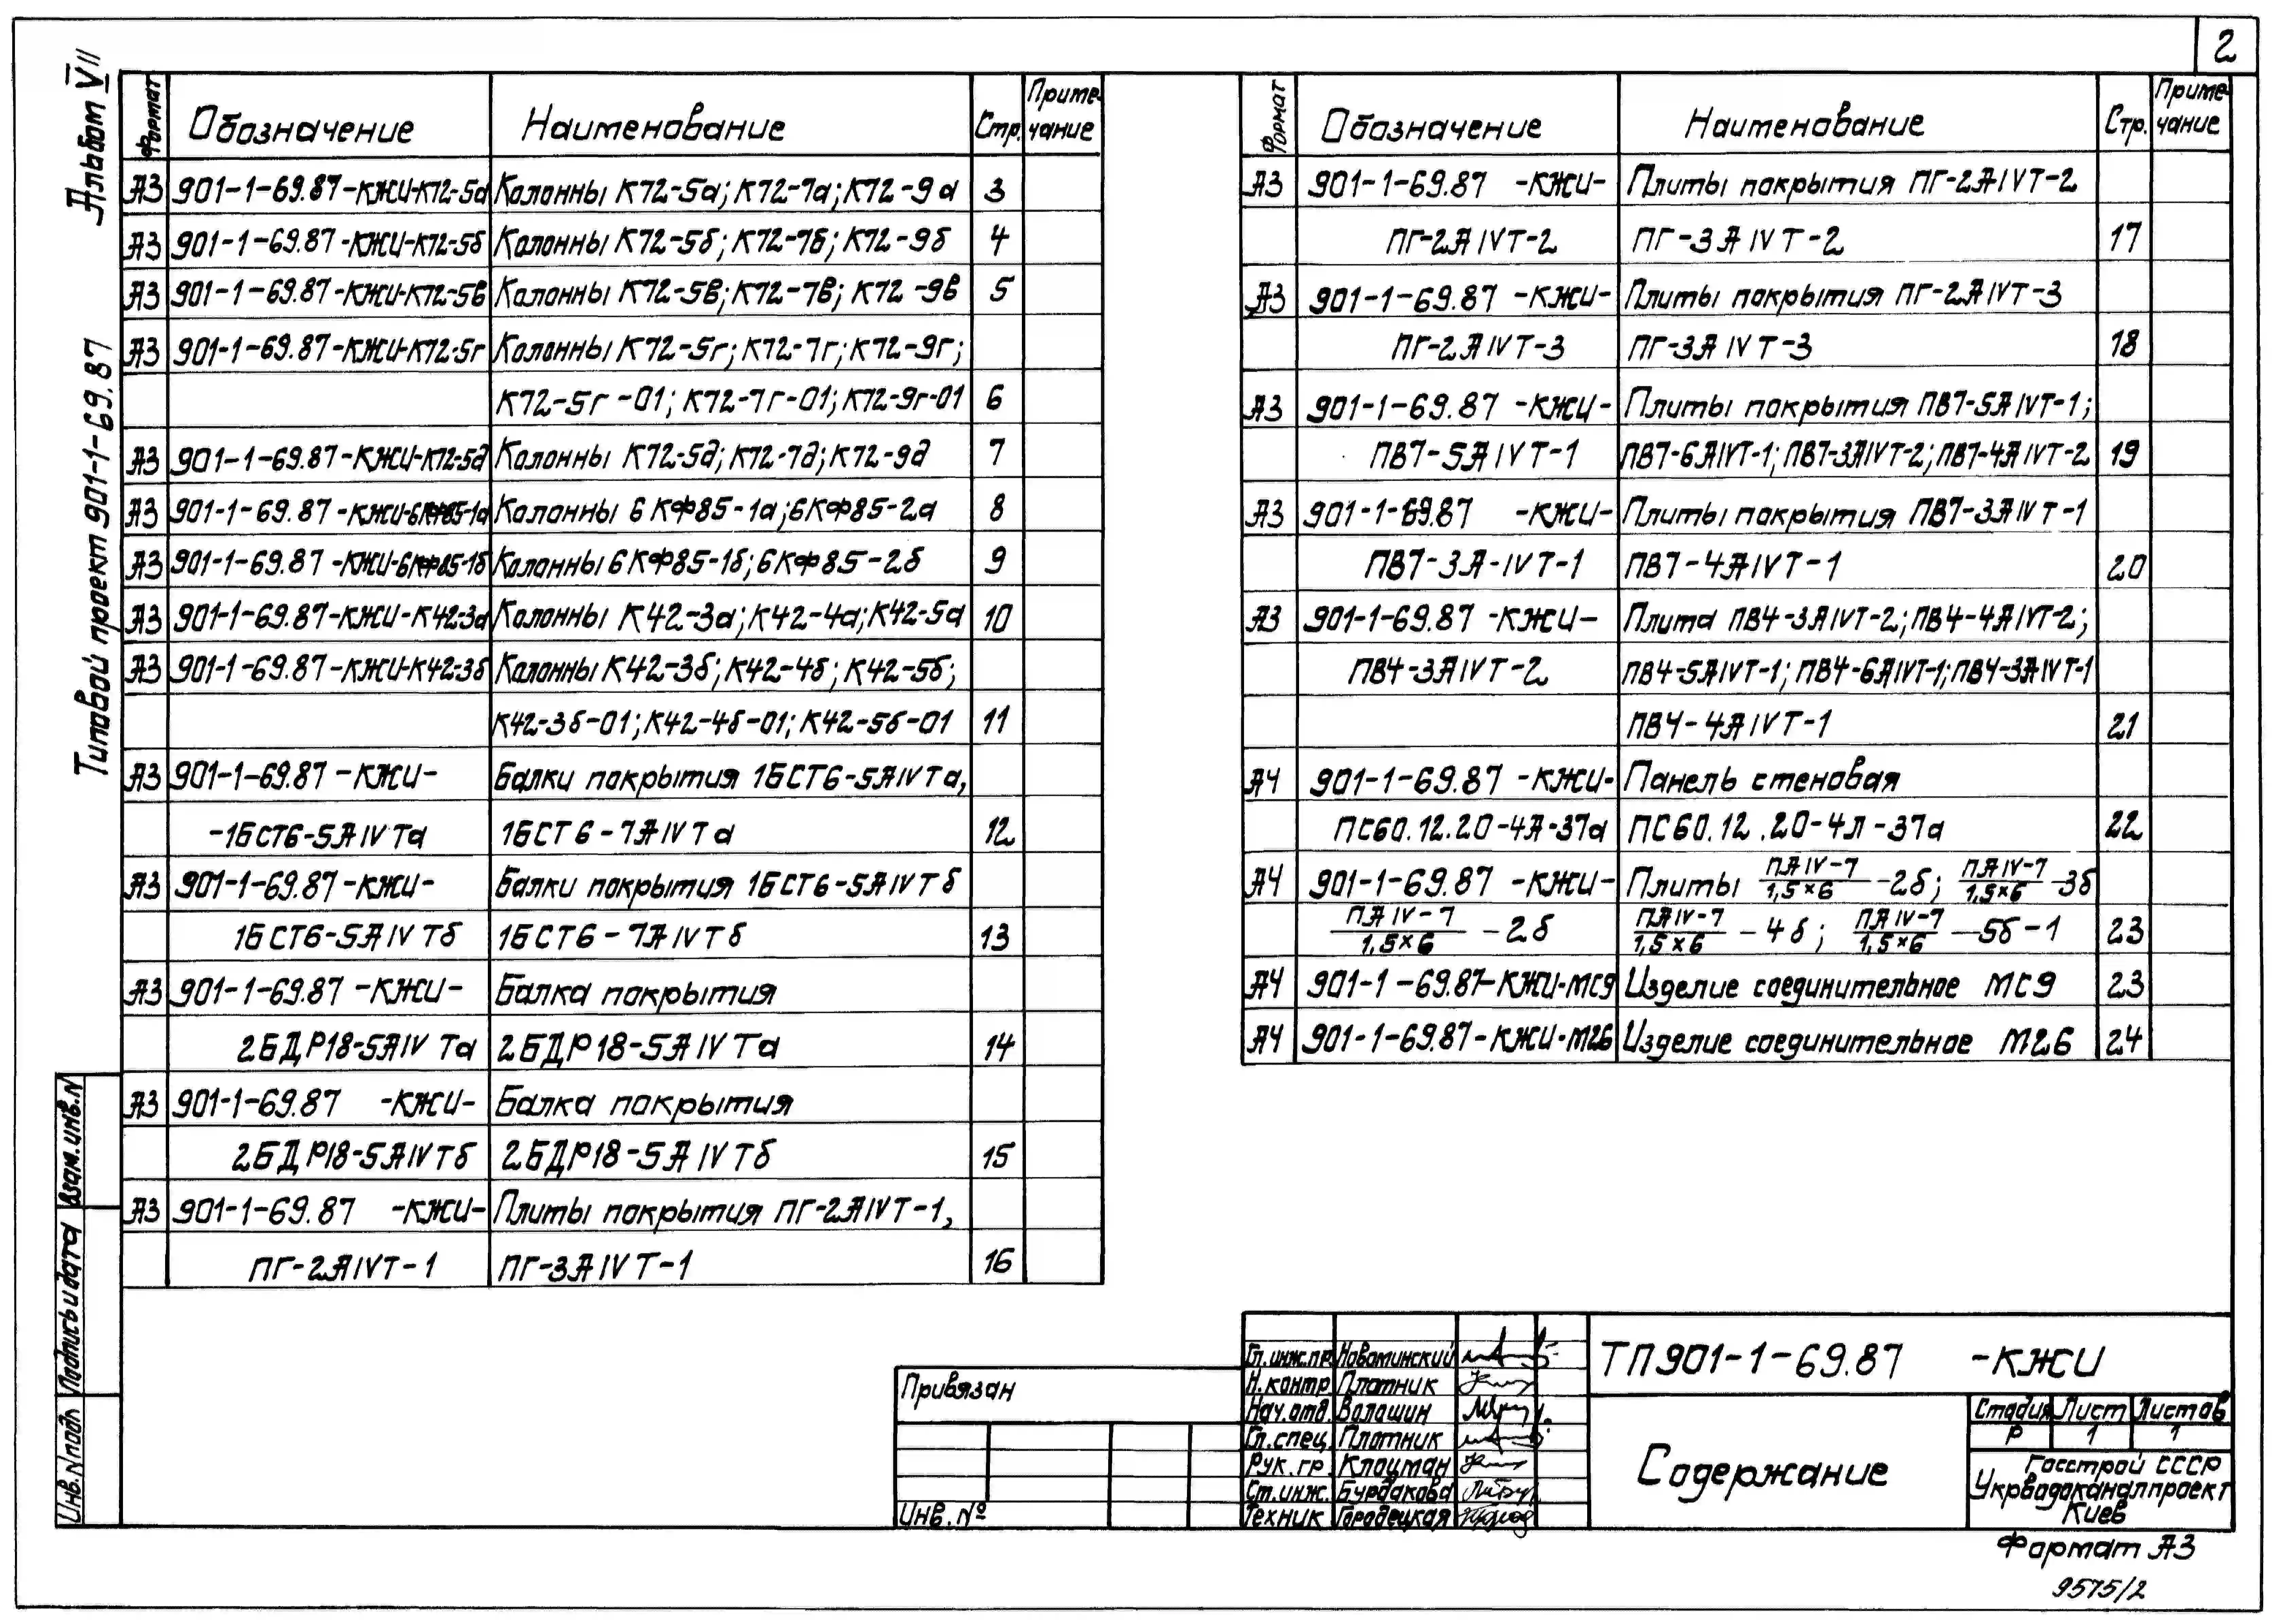 2
Альбом VII
Типовой проект 901-1-69.87
Формат Обозначение Наименование Стр. Приме-чание
А3 901-1-69.87-КЖИ-К72-5а Колонны К72-5а; К72-7а; К72-9а 3
А3 901-1-69.87-КЖИ-К72-5б Колонны К72-5б; К72-7б; К72-9б 4
А3 901-1-69.87-КЖИ-К72-5в Колонны К72-5в; К72-7в; К72-9в 5
А3 901-1-69.87-КЖИ-К72-5г Колонны К72-5г; К72-7г; К72-9г;
К72-5г-01; К72-7г-01; К72-9г-01 6
А3 901-1-69.87-КЖИ-К72-5д Колонны К72-5д; К72-7д; К72-9д 7
А3 901-1-69.87-КЖИ-6КФ85-1а Колонны 6КФ85-1а; 6КФ85-2а 8
А3 901-1-69.87-КЖИ-6КФ85-1б Колонны 6КФ85-1б; 6КФ85-2б 9
А3 901-1-69.87-КЖИ-К42-3а Колонны К42-3а; К42-4а; К42-5а 10
А3 901-1-69.87-КЖИ-К42-3б Колонны К42-3б; К42-4б; К42-5б;
К42-3б-01; К42-4б-01; К42-5б-01 11
А3 901-1-69.87-КЖИ- Балки покрытия 1БСТ6-5АIVТа,
-1БСТ6-5АIVТа 1БСТ6-7АIVТа 12
А3 901-1-69.87-КЖИ- Балки покрытия 1БСТ6-5АIVТб
1БСТ6-5АIVТб 1БСТ6-7АIVТб 13
А3 901-1-69.87-КЖИ- Балка покрытия
2БДР18-5АIVТа 2БДР18-5АIVТа 14
А3 901-1-69.87 -КЖИ- Балка покрытия
2БДР18-5АIVТб 2БДР18-5АIVТб 15
А3 901-1-69.87 -КЖИ- Плиты покрытия ПГ-2АIVТ-1,
ПГ-2АIVТ-1 ПГ-3АIVТ-1 16
Формат Обозначение Наименование Стр. Приме-чание
А3 901-1-69.87 -КЖИ- Плиты покрытия ПГ-2АIVТ-2
ПГ-2АIVТ-2 ПГ-3АIVТ-2 17
А3 901-1-69.87 -КЖИ- Плиты покрытия ПГ-2АIVТ-3
ПГ-2АIVТ-3 ПГ-3АIVТ-3 18
А3 901-1-69.87 -КЖИ- Плиты покрытия ПВ7-5АIVТ-1;
ПВ7-5АIVТ-1 ПВ7-6АIVТ-1; ПВ7-3АIVТ-2; ПВ7-4АIVТ-2 19
А3 901-1-69.87 -КЖИ- Плиты покрытия ПВ7-3АIVТ-1
ПВ7-3А-IVТ-1 ПВ7-4АIVТ-1 20
А3 901-1-69.87 -КЖИ- Плита ПВ4-3АIVТ-2; ПВ4-4АIVТ-2;
ПВ4-3АIVТ-2 ПВ4-5АIVТ-1; ПВ4-6АIVТ-1; ПВ4-3АIVТ-1
ПВ4-4АIVТ-1 21
А4 901-1-69.87 -КЖИ- Панель стеновая
ПС60.12.20-4А-37а ПС60.12.20-4Л-37а 22
А4 901-1-69.87 -КЖИ- Плиты ПАIV-7/1,5×6-2б; ПАIV-7/1,5×6-3б
ПАIV-7/1,5×6-2б ПАIV-7/1,5×6-4б; ПАIV-7/1,5×6-5б-1 23
А4 901-1-69.87-КЖИ-МС9 Изделие соединительное МС9 23
А4 901-1-69.87-КЖИ-М26 Изделие соединительное М26 24
Взам. инв. N
Подпись и дата
Инв. N подл
Привязан
Инв. №
Гл. инж. пр. Новоминский
Н. контр Плотник
Нач. отд. Волошин
Гл. спец. Плотник
Рук. гр. Клоцман
Ст. инж. Бурдакова
Техник Городецкая
ТП901-1-69.87 -КЖИ
Содержание
Стадия Лист Листов
Р 1 1
Госстрой СССР
Укрводоканалпроект
Киев
Формат А3
9575/2